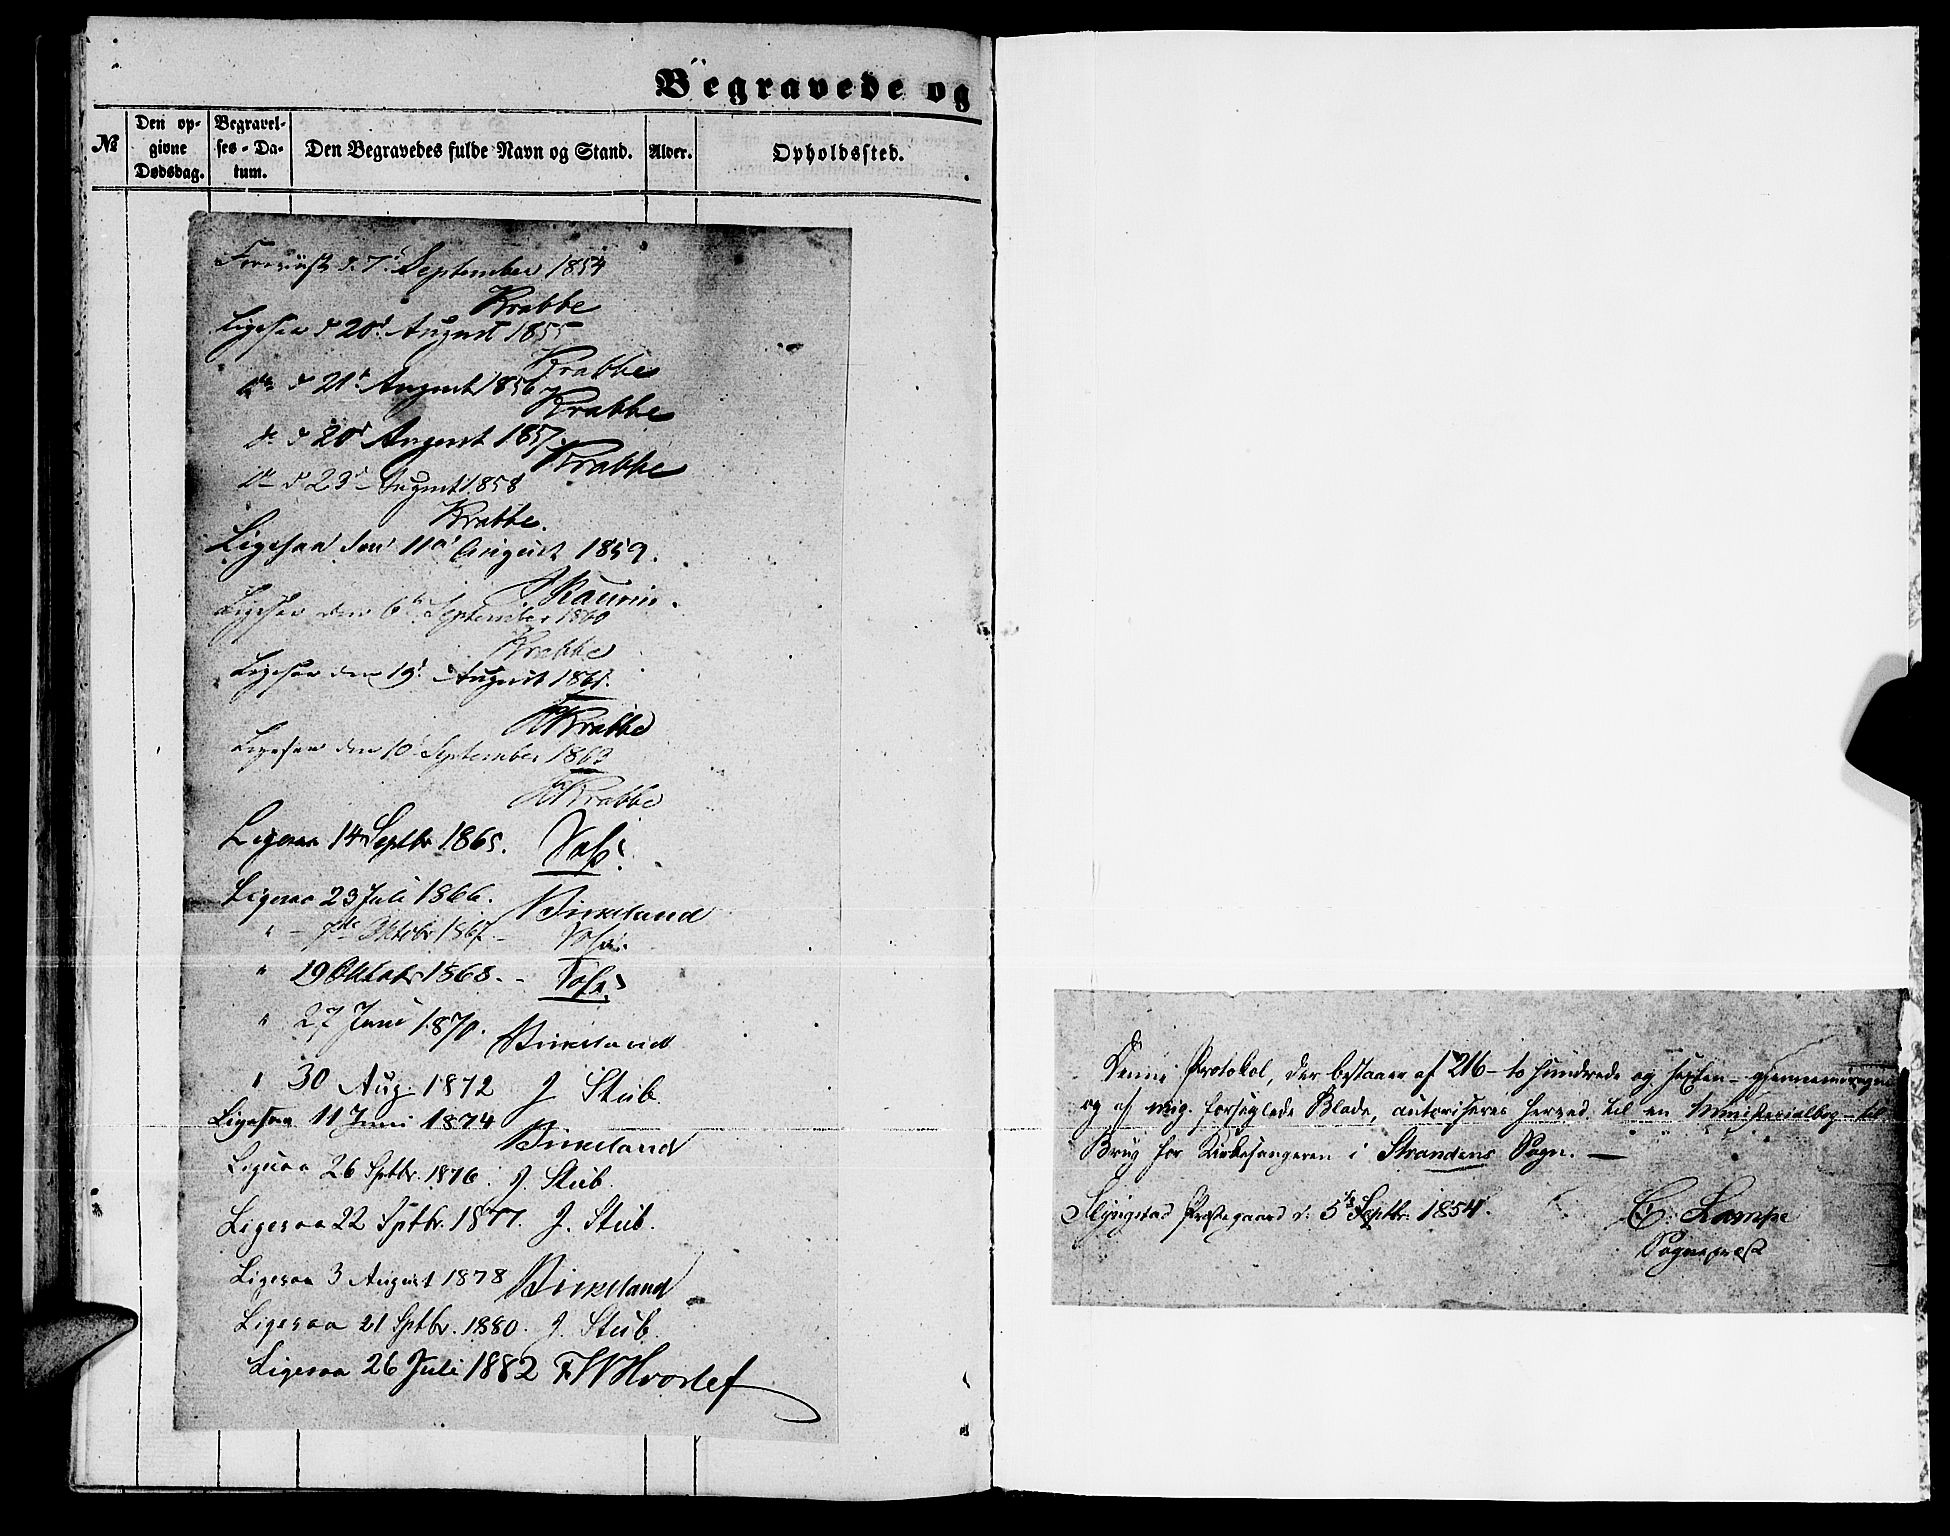 Begravede og
№
Den op-
givne
Dødsdag.
Begravel-
ses-Da-
tum.
Den Begravedes fulde Navn og Stand.
Alder.
Opholdssted.
d. 7 September 1854
Krabbe
Ligesaa d 20d August 1855
Krabbe
do d 21d August 1856
Krabbe
do d 20d August 1857
Krabbe
do d 23d August 1858
Krabbe.
Ligesaa den 11d August 1859.
Kaurin.
Ligesaa den 6te September 1860
Krabbe
Ligesaa den 19d August 1861.
Krabbe
Ligesaa den 10 September 1863
Krabbe
Ligesaa 14 Septbr 1865.
Ligesaa 23 Juli 1866. Birkeland
" - 7de Oktobr 1867 -
" 19 Oktobr 1868. -
" 27 Juni 1870. Birkeland
" 30 Aug. 1872 J. Stub.
Ligesaa 11 Juni 1874
Birkeland
Ligesaa 26 Septbr. 1876. J. Stub.
Ligesaa 22 Sptbr. 1877. J. Stub.
Ligesaa 3 August 1878 Birkeland
Ligesaa 21 Sptbr. 1880. J. Stub.
Ligesaa 26 Juli 1882 F W Hvoslef
Denne Protokol, der bestaaer af 216 - to hundrede og sexten - gjennemdragne
og af mig forseglede Blade, autoriseres herved til en Ministerialbog til
Brug for Kirkesangeren i Strandens Sogn. —
Slyngstad Præstegaard d. 5te Septbr. 1854.
C. Lampe
Sognepræst